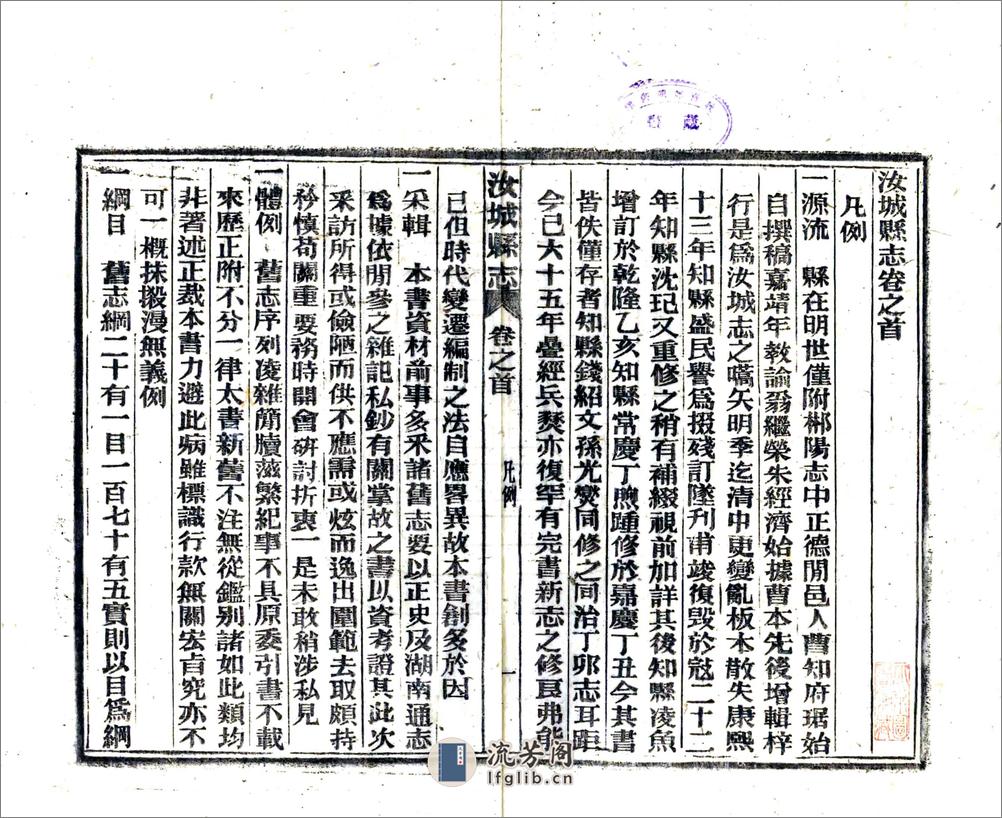 汝城縣志卷之首
凡例
一源流　縣在明世僅附郴陽志中正德間邑人曹知府琚始
自撰稿嘉靖年教諭翁繼榮朱經濟始據曹本先後增輯梓
行是爲汝城志之嚆矢明季迄清中更變亂板木散失康熙
十三年知縣盛民譽爲掇殘訂墜刋甫竣復毁於寇二十二
年知縣沈玘又重修之稍有補綴視前加詳其後知縣凌魚
增訂於乾隆乙亥知縣常慶丁煦踵修於嘉慶丁丑今其書
皆佚僅存者知縣錢紹文孫光燮同修之同治丁卯志耳距
今已六十五年疊經兵燹亦復罕有完書新志之修良弗能
汝城縣志　卷之首　凡例　一
已但時代變遷編制之法自應畧異故本書創多於因
一采輯　本書資材前事多釆諸舊志要以正史及湖南通志
爲據依間參之雜記私鈔有關掌故之書以資考證其此次
釆訪所得或儉陋而供不應需或炫而逸出圍範去取頗持
矜愼苟關重要務時開會研討折衷一是未敢稍涉私見
一體例　舊志序列凌雜簡牘滋繁紀事不具原委引書不載
來歷正附不分一律大書新舊不注無從鑑别諸如此類均
非著述正裁本書力避此病雖標識行款無關宏旨究亦不
可一概抹摋漫無義例
一綱目　舊志綱二十有一目一百七十有五實則以目爲綱
藏書
流芳阁
lfglib.cn